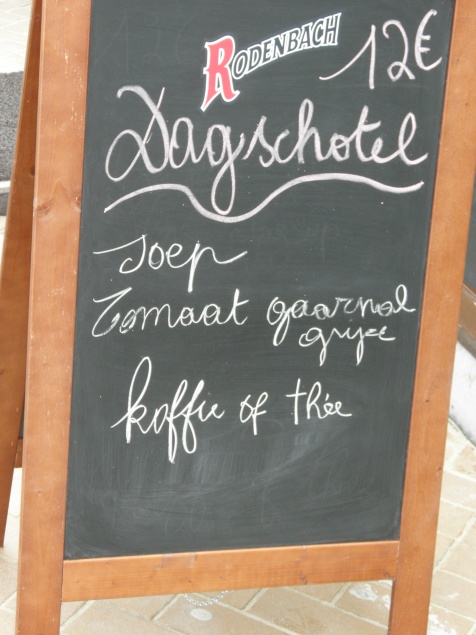 RODENBACH
12€
Dagschotel
soep
Tomaat gaarnal
grijze
koffie of thée